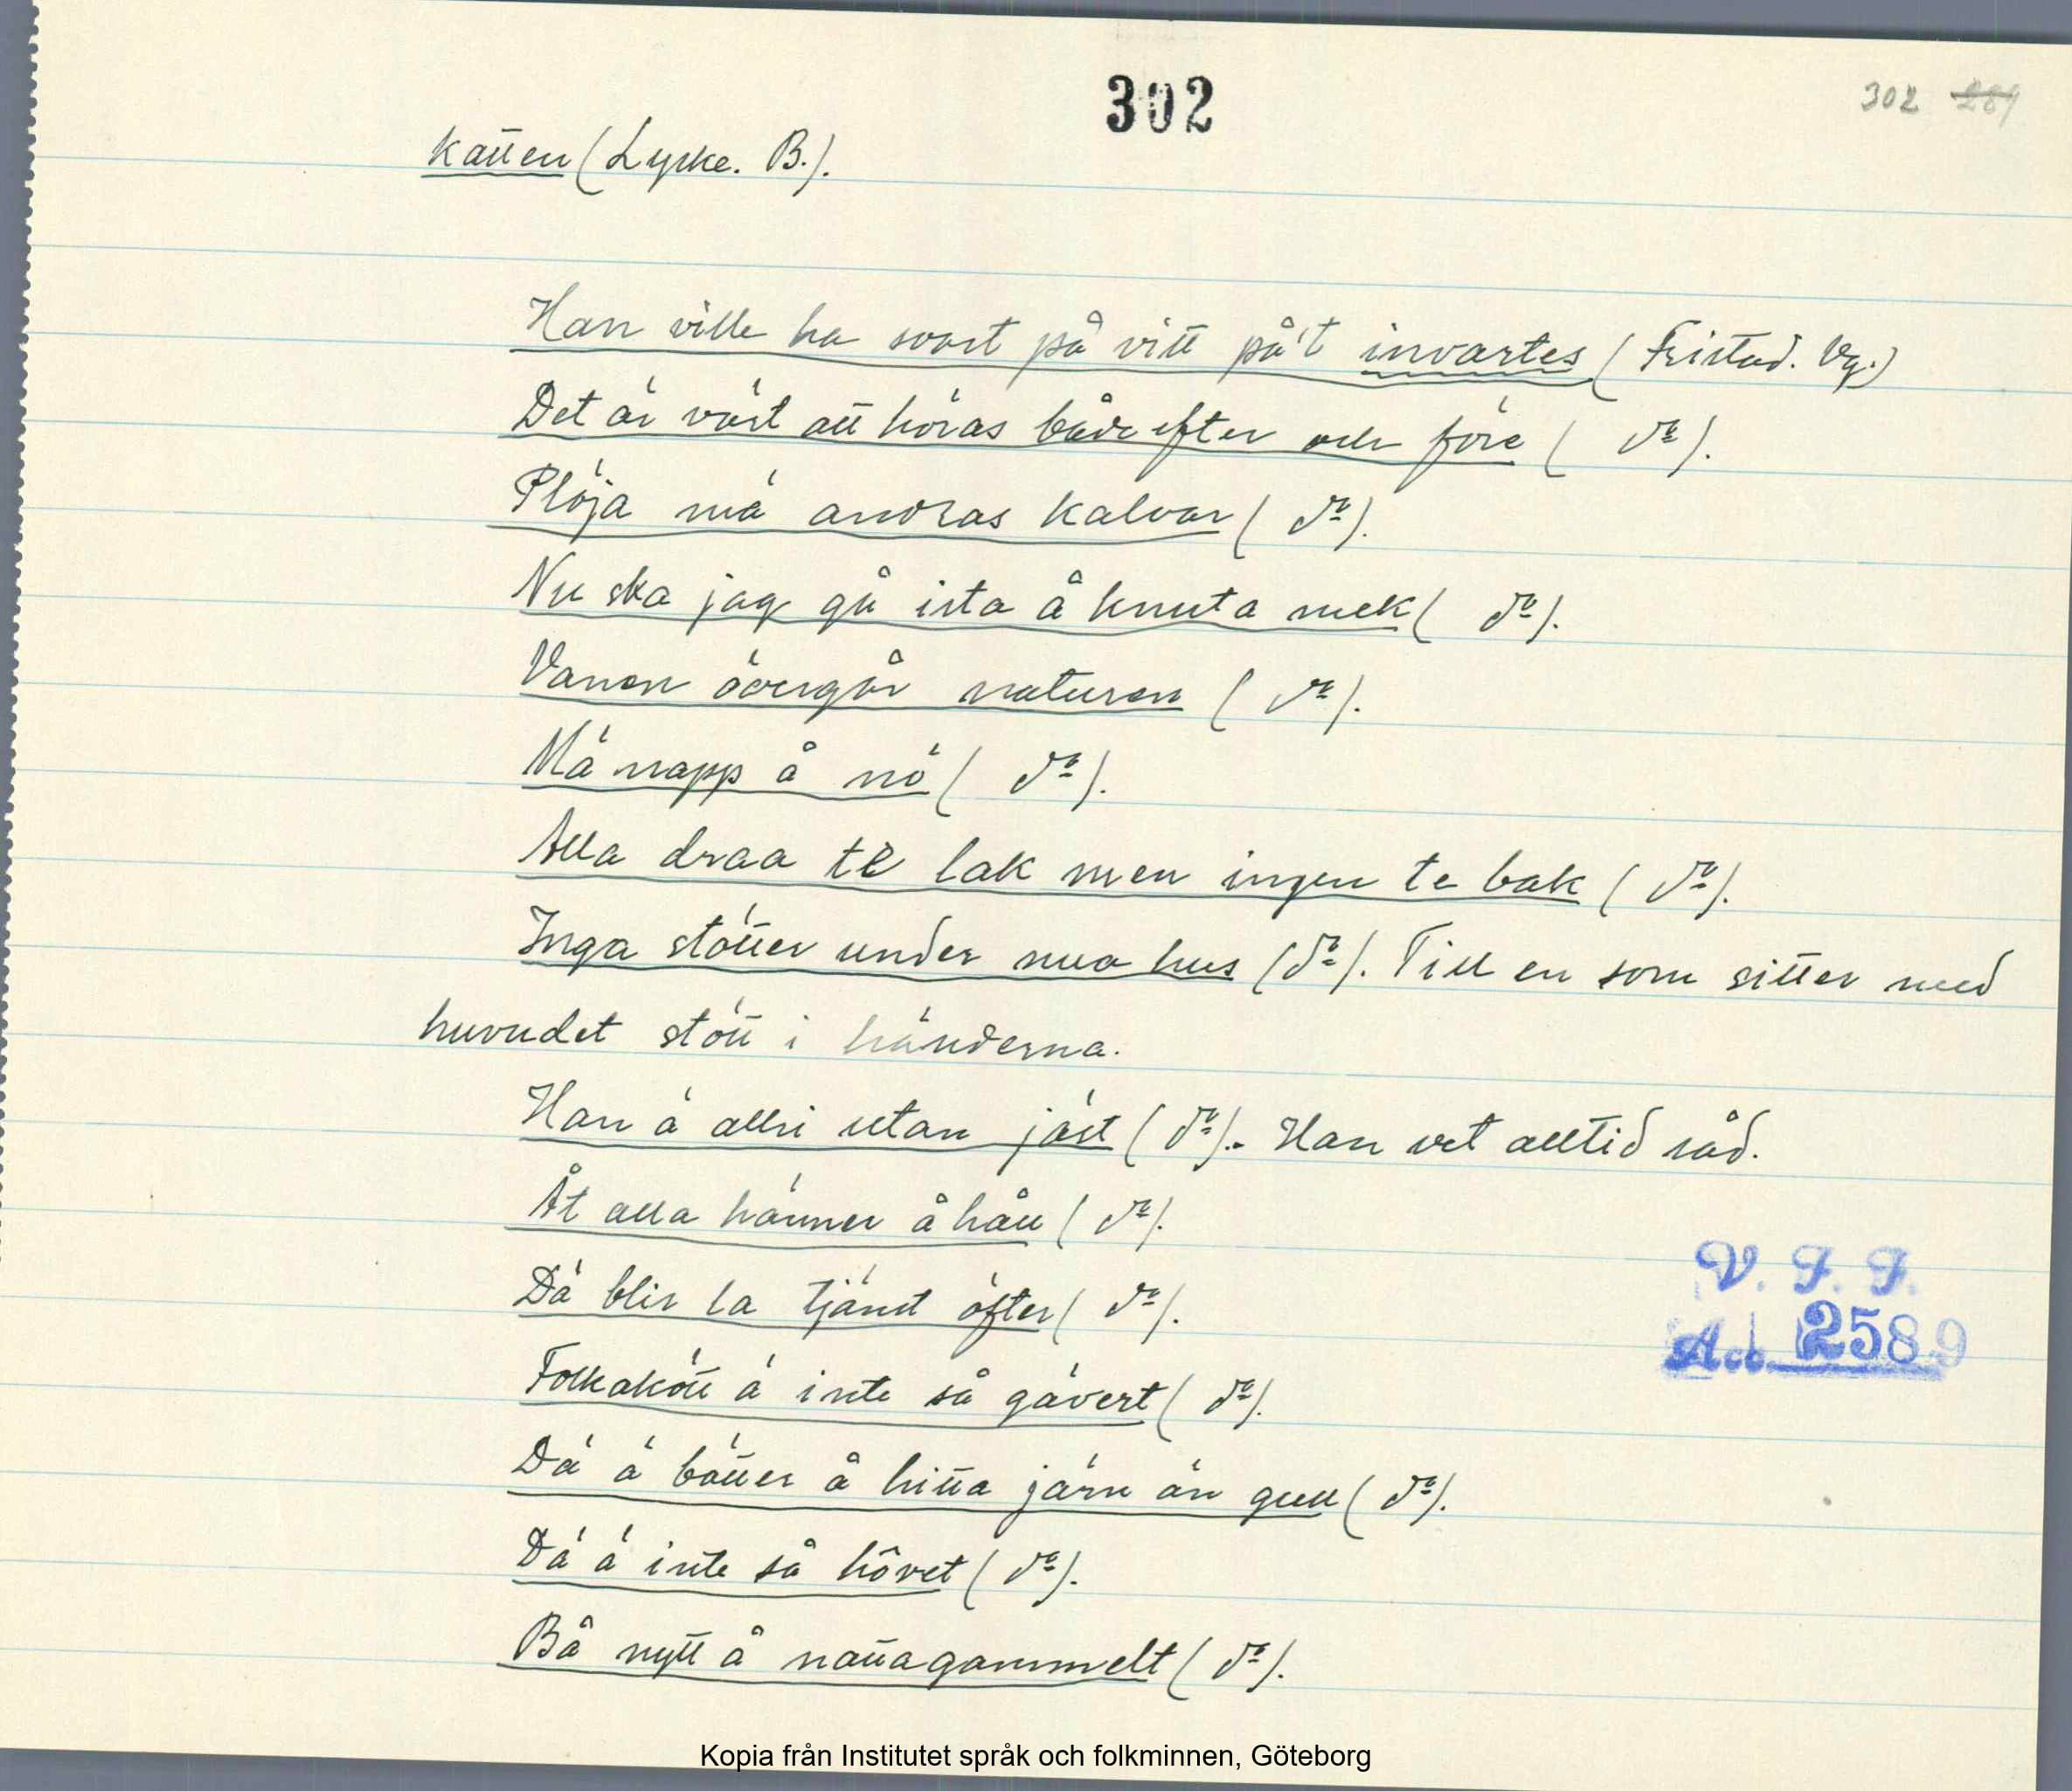 302
302 284
katten (Lyske. B.).
Han ville ha svart på vitt på't invartes (Fristad. Vg.)
Det är värt att höras både efter och före (dº).
Plöja mä andras kalvar (dº).
Nu ska jag gå ista å knuta mek (dº).
Vanan övergår naturen (dº).
Mä napp å nö (dº).
Alla draa te lak men ingen te bak (dº).
Inga stötter under nua hus (dº). Till en som sitter med
huvudet stött i händerna.
Han ä alri utan jäst (dº).- Han vet alltid råd.
Åt alla hänner å håll (dº).
Dä blir la tjänst öfter (dº).
Folkakött ä inte så gävert (dº).
Dä ä bätter å hitta järn än gull (dº).
Dä ä inte så hövet (dº).
Bå nytt å nattagammelt (dº).
V. F. F.
Acc. 2589
Kopia från Institutet språk och folkminnen, Göteborg